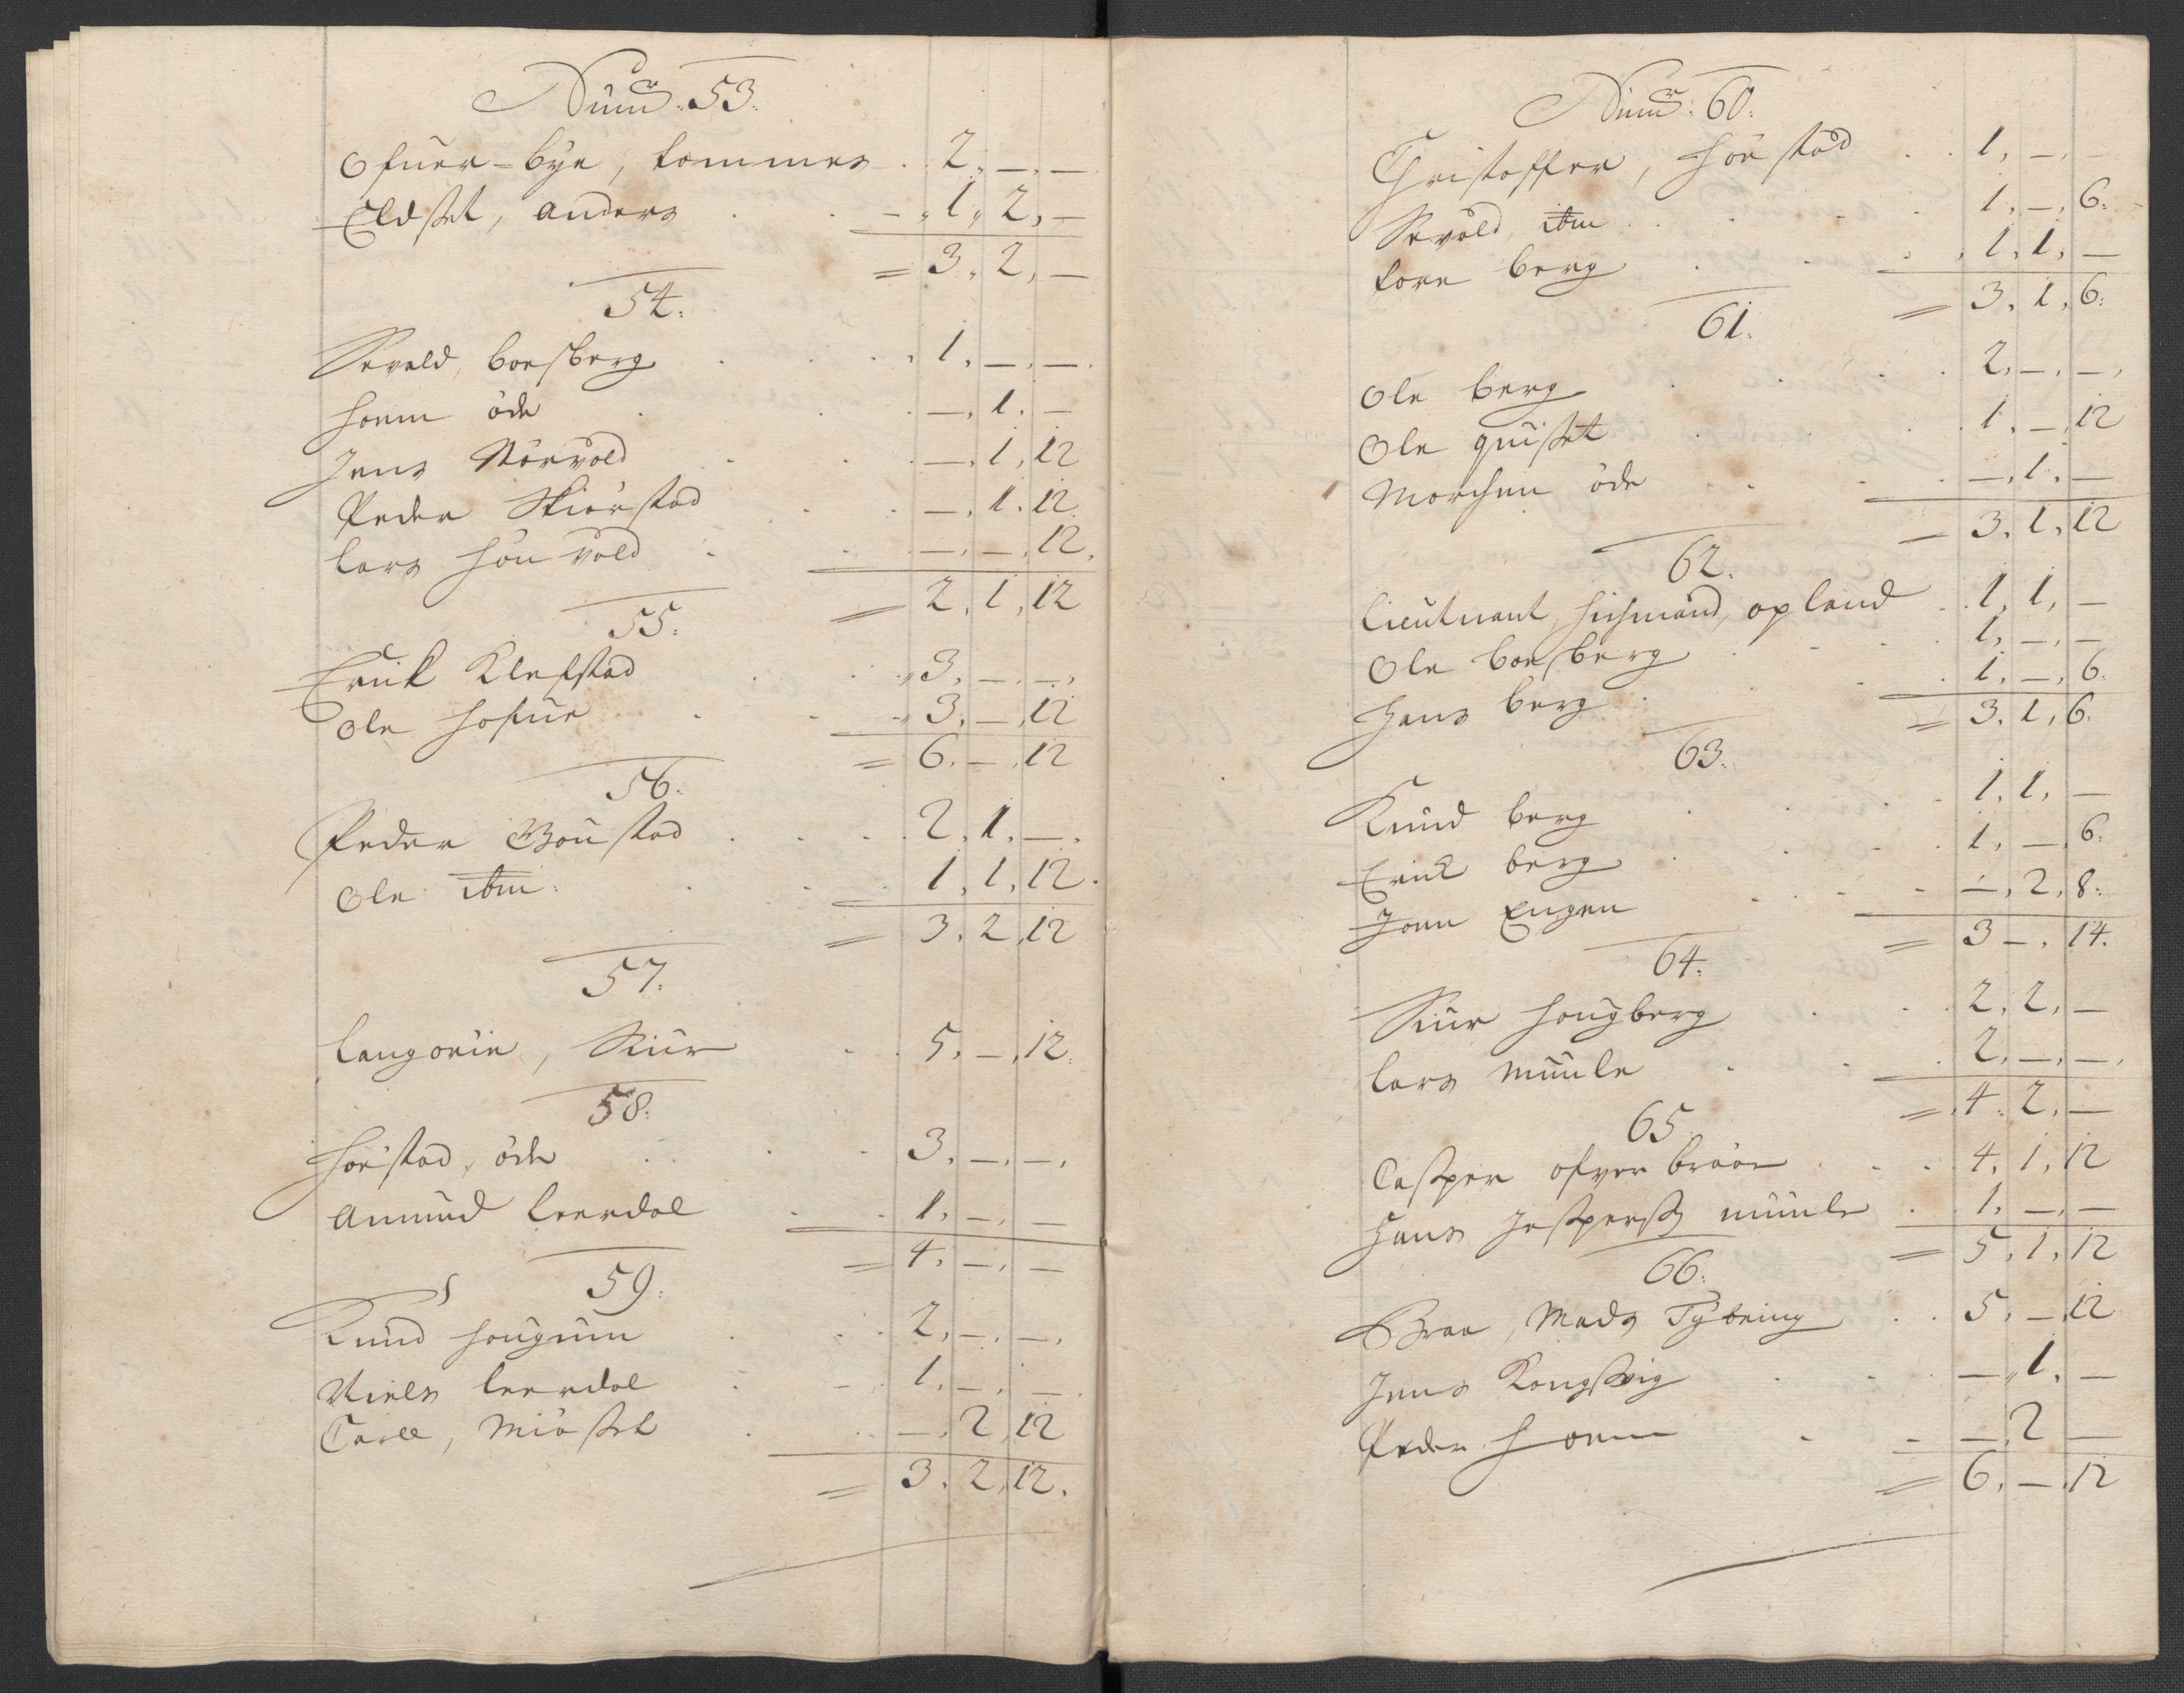 Num̅r. 53.
Ofuer-bye, tommes . 2. — . —
Eldset, anders . . - . 1. 2. —
= 3. 2. —
54.
Sevald, boesberg . . . . 1. — . — .
hoem öde . . . — . 1. —
Jens Nörvold . . . — . 1. 12
Peder Skiörstad . . . — . 1. 12.
Lars hön vold . . . — . — . 12.
= 2. 1. 12
55.
Erick Klefstad . . . 3. — . — .
Ole hofue . . . 3. — . 12
= 6. — . 12
56.
Peder Boustad . . . . 2. 1. — .
Ole ibm: . . . 1. 1. 12.
= 3. 2. 12
57.
Langörie, Siur . . 5. — . 12.
58.
höestad, öde . . . 3. — . — .
Amund Leerdal . . 1. — . —
= 4. — . —
59.
Knud hougum . . . 2. — . — .
Niels leerdal . . 1. — . — .
Tarll, Miösset . . . — . 2. 12
= 3. 2. 12.
Num̅r: 60.
Christoffer, höe stad . . 1. — . —
Sevold, ibm . . . 1. — . 6.
tore berg . . . . 1. 1. —
= 3. 1. 6.
61.
Ole berg . . . . 2. — . — .
Ole quiset . . . 1. — . 12
Morchen öde . . . — . 1. —
= 3. 1. 12
62.
Lieutnant, hichmand, opland . 1. 1. —
Ole boesberg . . . 1. — . —
Hans berg . . . 1. — . 6.
= 3. 1. 6.
63.
Knud berg . . . . 1. 1. —
Erick berg . . . 1. — . 6.
Joen Engen . . . - — . 2. 8.
= 3 — . 14.
64.
Siur hougberg . . . 2. 2. —
Lars muule . . . 2. — . — .
= 4. 2. —
65
Casper ofver bröen . . . 4. 1. 12
Hans Jespersß muule . . 1. — . —
= 5. 1. 12
66.
Braa, Mads Tybring . . 5. — . 12
Jens Kongsvig . . . — . 1. —
Peder hoem . . — . 2 —
= 6. — . 12